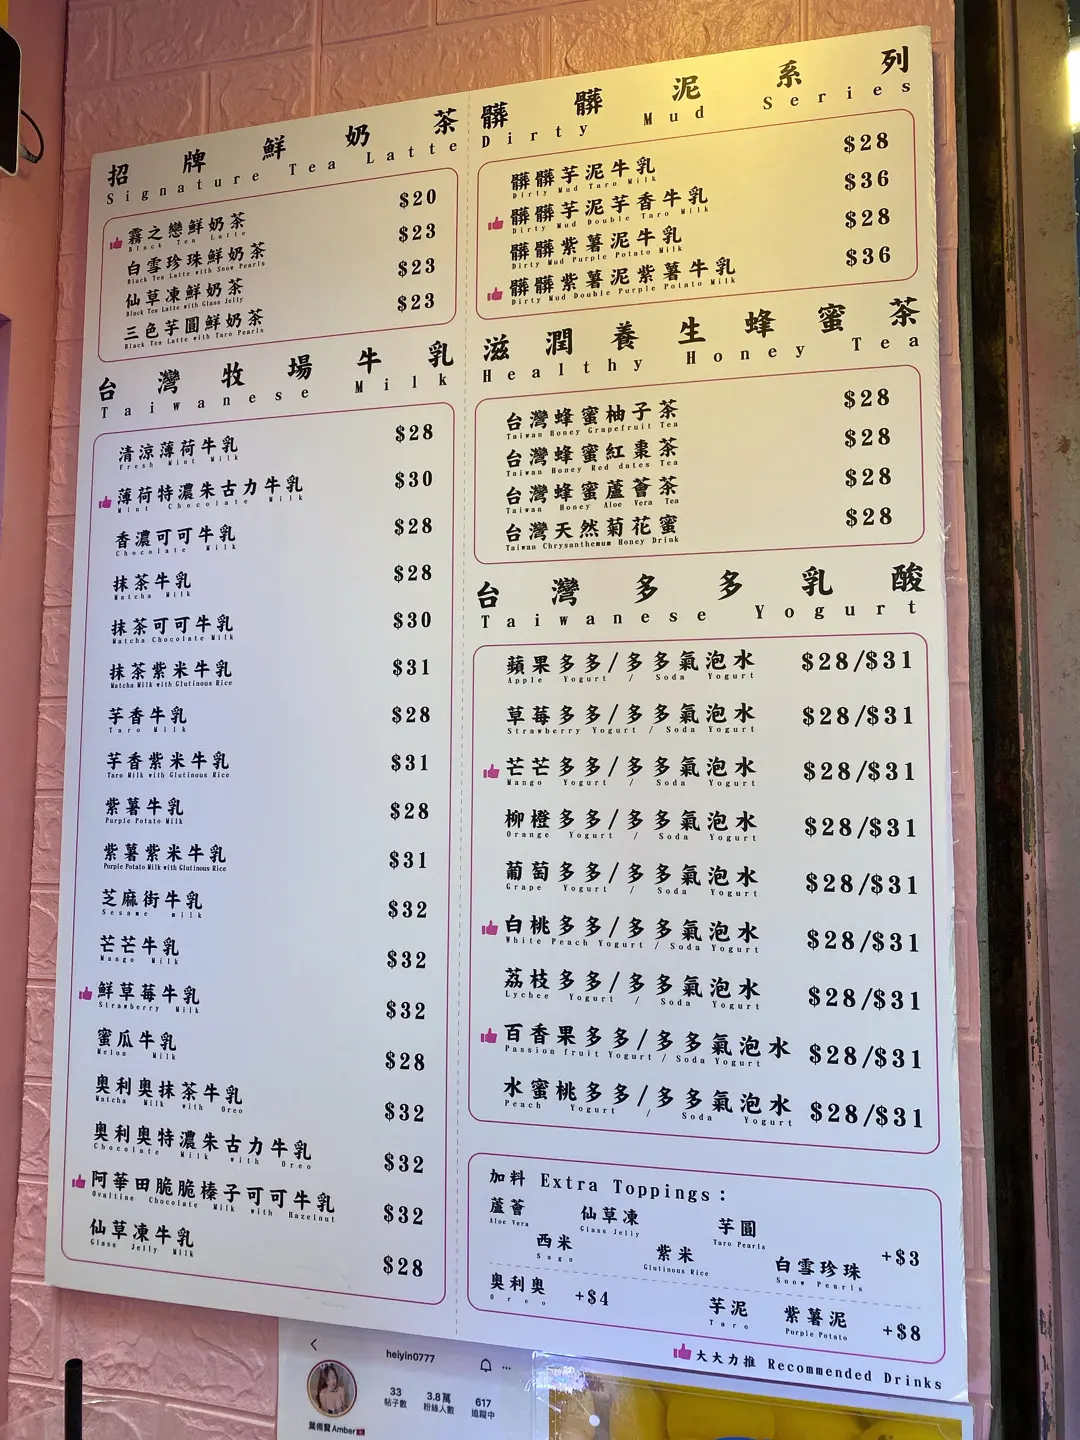 招牌鮮奶茶
Signature Tea Latte
霧之戀鮮奶茶 $20
Black Tea Latte
白雪珍珠鮮奶茶 $23
Black Tea Latte with Snow Pearls
仙草凍鮮奶茶 $23
Black Tea Latte with Glass Jelly
三色芋圓鮮奶茶 $23
Black Tea Latte with Taro Pearls
台灣牧場牛乳
Taiwanese Milk
清涼薄荷牛乳 $28
Fresh Mint Milk
薄荷特濃朱古力牛乳 $30
Mint Chocolate Milk
香濃可可牛乳 $28
Chocolate Milk
抹茶牛乳 $28
Matcha Milk
抹茶可可牛乳 $30
Matcha Chocolate Milk
抹茶紫米牛乳 $31
Matcha Milk with Glutinous Rice
芋香牛乳 $28
Taro Milk
芋香紫米牛乳 $31
Taro Milk with Glutinous Rice
紫薯牛乳 $28
Purple Potato Milk
紫薯紫米牛乳 $31
Purple Potato Milk with Glutinous Rice
芝麻街牛乳 $32
Sesame milk
芒芒牛乳 $32
Mango Milk
鮮草莓牛乳 $32
Strawberry Milk
蜜瓜牛乳 $28
Melon Milk
奧利奧抹茶牛乳 $32
Matcha Milk with Oreo
奧利奧特濃朱古力牛乳 $32
Chocolate Milk with Oreo
阿華田脆脆榛子可可牛乳 $32
Ovaltine Chocolate Milk with Hazelnut
仙草凍牛乳 $28
Glass Jelly Milk
髒髒泥系列
Dirty Mud Series
髒髒芋泥牛乳 $28
Dirty Mud Taro Milk
髒髒芋泥芋香牛乳 $36
Dirty Mud Double Taro Milk
髒髒紫薯泥牛乳 $28
Dirty Mud Purple Potato Milk
髒髒紫薯泥紫薯牛乳 $36
Dirty Mud Double Purple Potato Milk
滋潤養生蜂蜜茶
Healthy Honey Tea
台灣蜂蜜柚子茶 $28
Taiwan Honey Grapefruit Tea
台灣蜂蜜紅棗茶 $28
Taiwan Honey Red dates Tea
台灣蜂蜜蘆薈茶 $28
Taiwan Honey Aloe Vera Tea
台灣天然菊花蜜 $28
Taiwan Chrysanthemum Honey Drink
台灣多多乳酸
Taiwanese Yogurt
蘋果多多/多多氣泡水 $28/$31
Apple Yogurt / Soda Yogurt
草莓多多/多多氣泡水 $28/$31
Strawberry Yogurt / Soda Yogurt
芒芒多多/多多氣泡水 $28/$31
Mango Yogurt / Soda Yogurt
柳橙多多/多多氣泡水 $28/$31
Orange Yogurt / Soda Yogurt
葡萄多多/多多氣泡水 $28/$31
Grape Yogurt / Soda Yogurt
白桃多多/多多氣泡水 $28/$31
White Peach Yogurt / Soda Yogurt
荔枝多多/多多氣泡水 $28/$31
Lychee Yogurt / Soda Yogurt
百香果多多/多多氣泡水 $28/$31
Passion fruit Yogurt / Soda Yogurt
水蜜桃多多/多多氣泡水 $28/$31
Peach Yogurt / Soda Yogurt
加料 Extra Toppings：
蘆薈 仙草凍 芋圓
Aloe Vera Glass Jelly Taro Pearls
西米 紫米 白雪珍珠 +$3
Sago Glutinous Rice Snow Pearls
奧利奧 +$4 芋泥 紫薯泥 +$8
Oreo Taro Purple Potato
大大力推 Recommended Drinks
heiyin0777
33 3.8萬 617
帖子數 粉絲人數 追蹤中
Amber